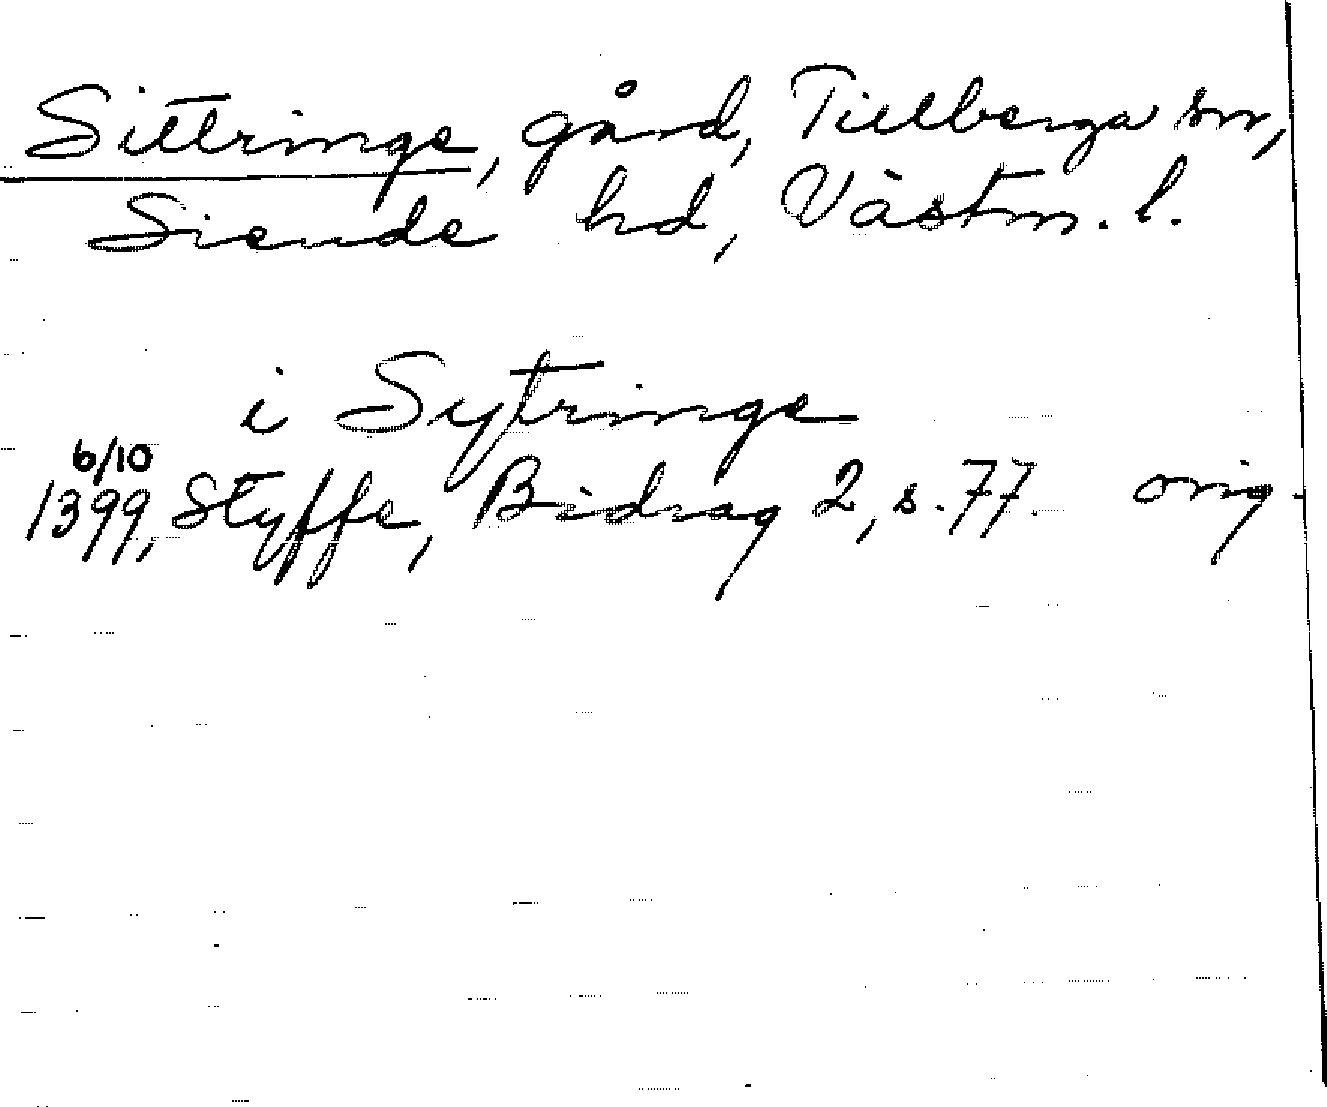 Sittringe, gård, Tillberga sn,
Siende hd, Västm. l.
i Sytringe
6/10
1399, Styffe, Bidrag 2, s. 77. orig.